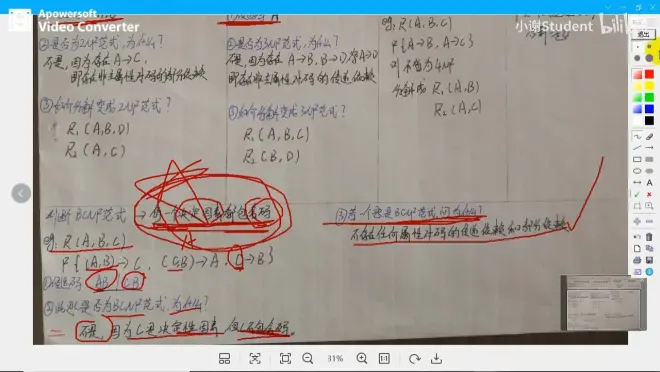 Apowersoft
Video Converter
小谢Student
bilibili
退出
②是否为2NF范式,为什么?
不是,因为存在 A→C,
即存在非主属性对码的部分依赖
③如何分解变成2NF范式?
R₁(A,B,D)
R₂(A,C)
②是否为3NF范式,为什么?
不是,因为存在 A→B, B→D,存A→D
即存在非主属性对码的传递依赖
③如何分解变成3NF范式?
R₁(A,B,C)
R₂(B,D)
R(A,B,C)
F{A→B, A→C}
分解成 R₁(A,B)
R₂(A,C)
判断 BCNF范式 → 每一个决定因素都包含码
例: R(A,B,C)
F{(A,B)→C, (C,B)→A, C→B}
①候选码 AB CB
为什么?
不是,因为C是决定性因素 但C不包含码。
③若一个题是BCNF范式 问为什么?
不存在任何属性对码的传递依赖和部分依赖
31%
1:1